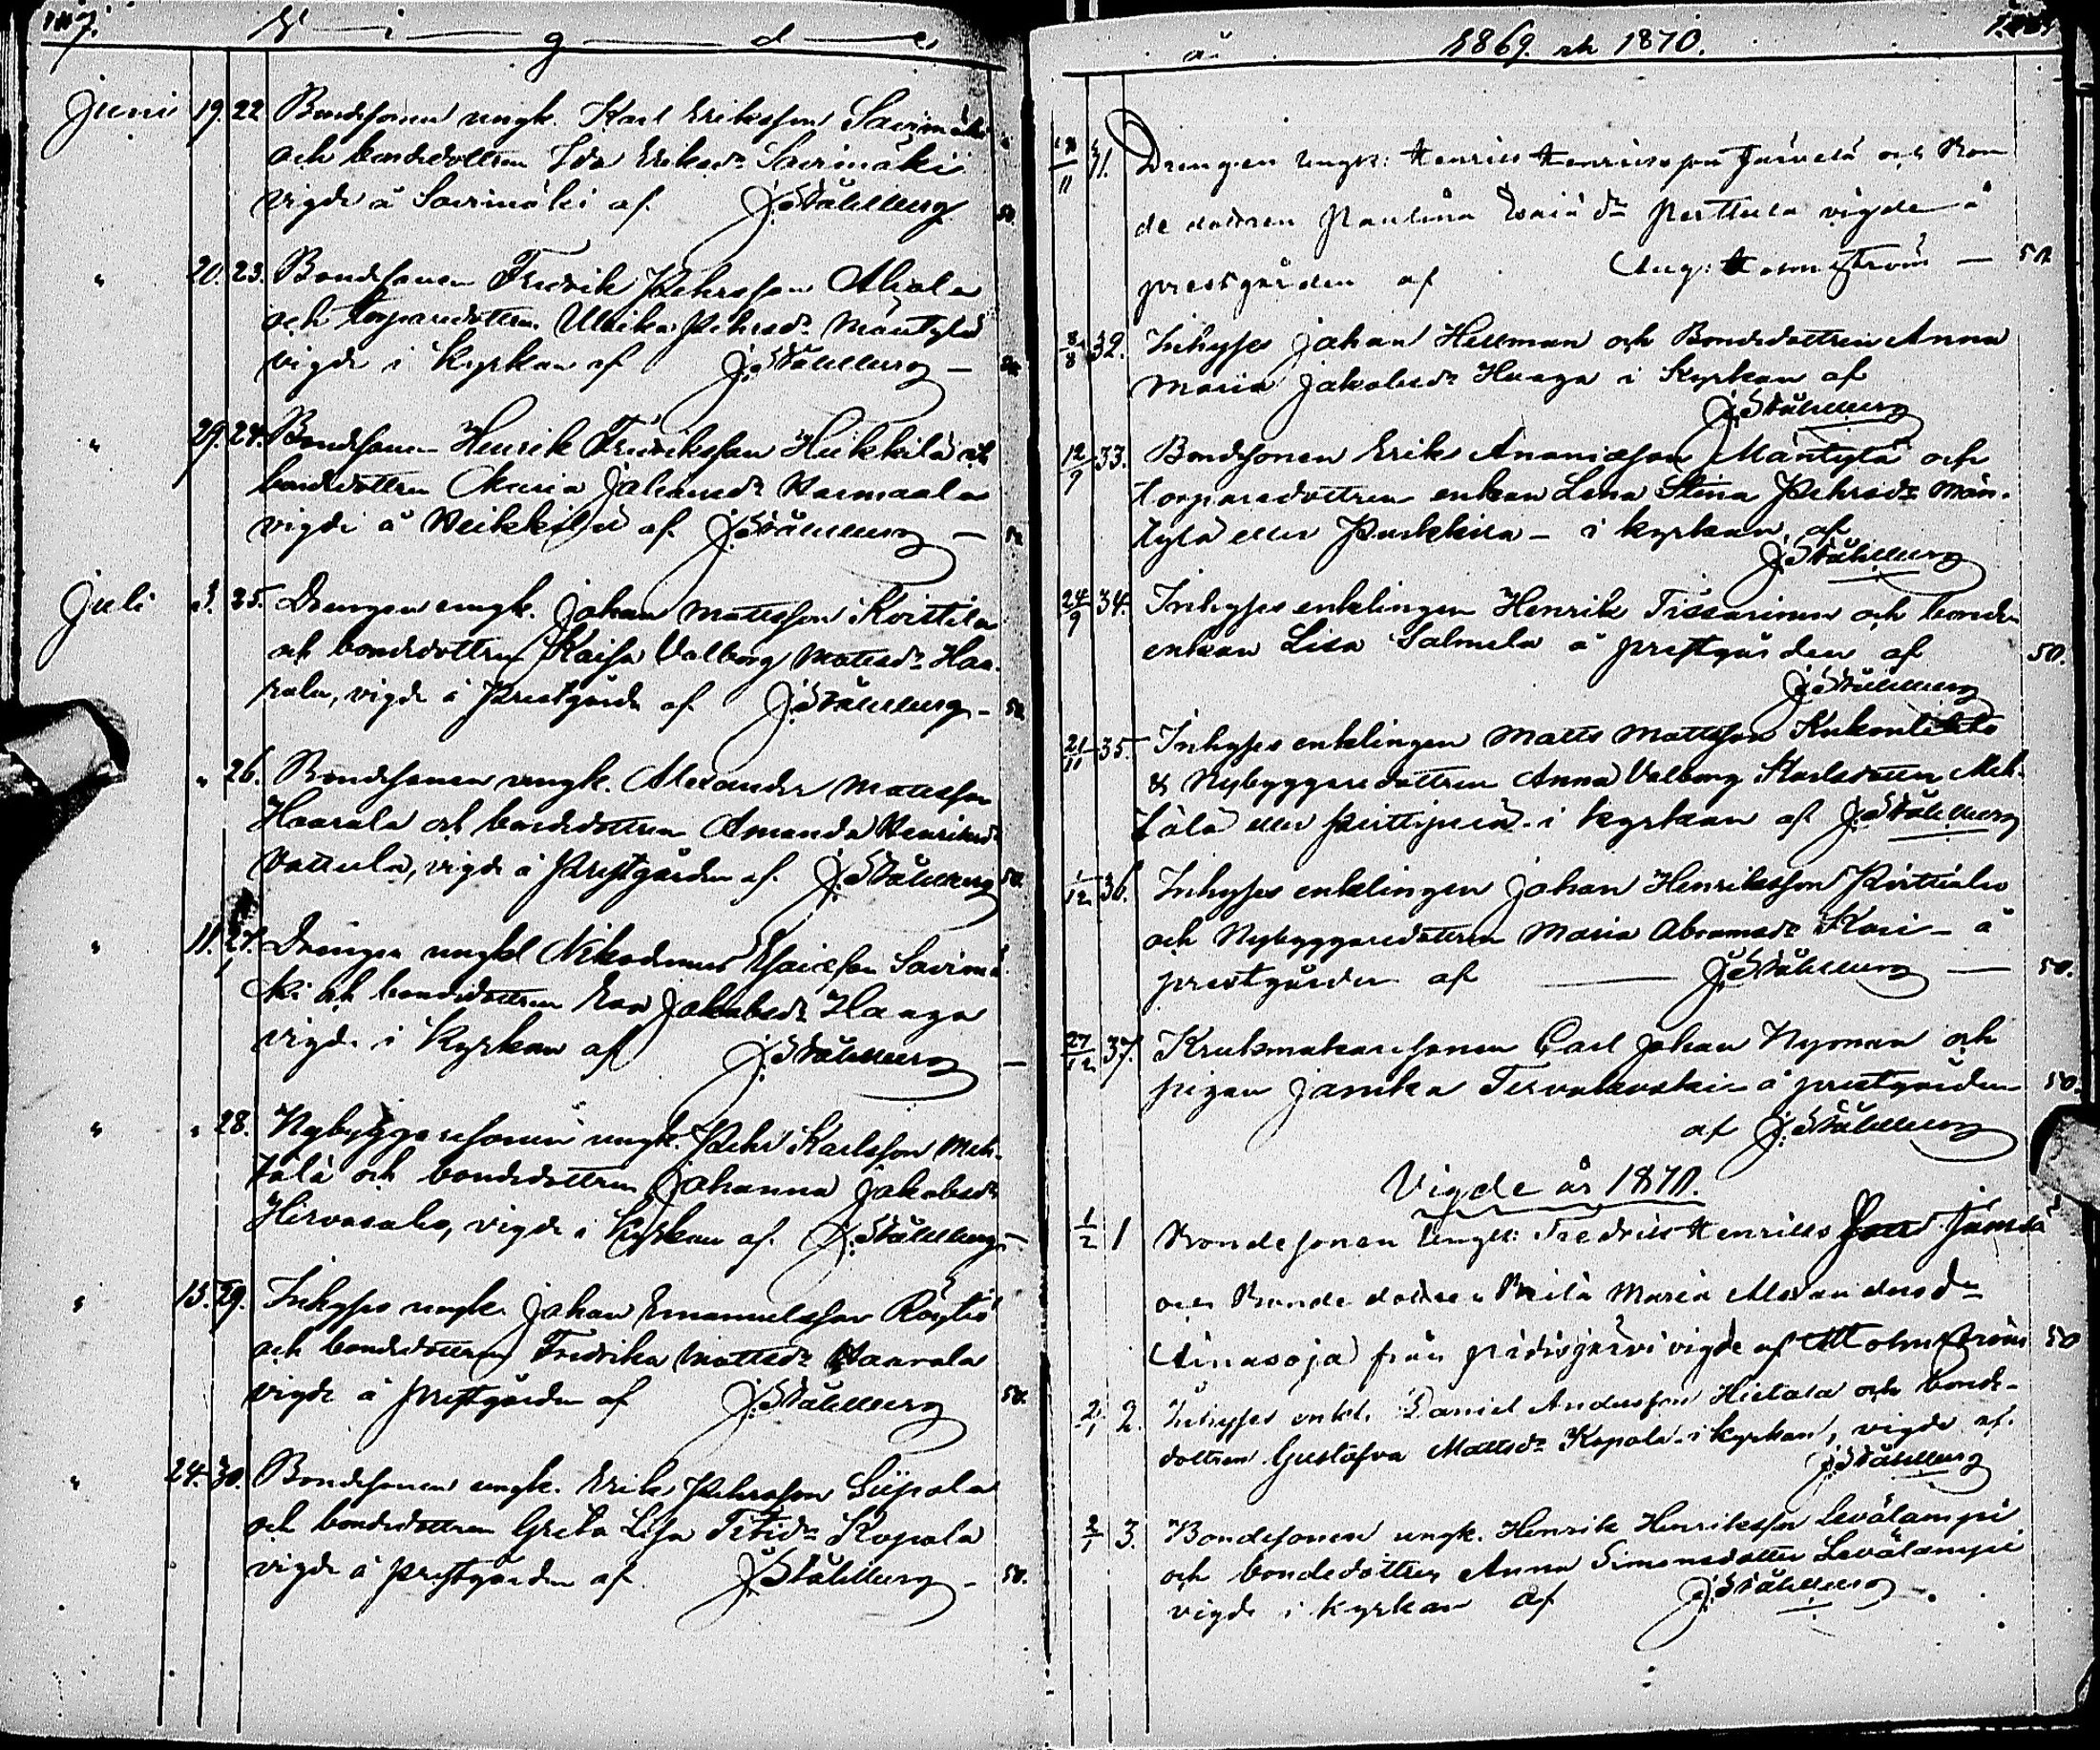 Vigde
Juni 19. 22 Bondesonen ungk. Karl Eriksson Savimäki
och bondedottren Ida Eriksdr Savimäki
vigde å Savimäki af J. Ståhlberg 50.
" 20. 23. Bondesonen Fredrik Pehrsson Ahola
och torparedottren Ulrika Pehrsdr Mäntylä
vigde i kyrkan af J. Ståhlberg —
" 29. 24. Bondesonen Henrik Fredriksson Heikkilä och
bondedottren Maria Johansdr
vigde å Heikkilä af J. Ståhlberg — 50.
Juli 3. 25. Drengen ungk. Johan Mattsson
och bondedottren Kaisa Valborg Mattsdr Haa-
rala, vigde å Prestgården af J. Ståhlberg — 50.
" 26. Bondesonen ungk. Alexander Mattsson
Haarala och bondedottren Amanda Henriksdr
Vattula, vigde å Prestgården af J. Ståhlberg 50.
" 11. 27. Drengen ungkl Nikodemus Esaiæson Savimä-
ki och bondedottren Eva Jakobsdr Haaga
vigde i kyrkan af J. Ståhlberg —
" " 28. Nybyggaresonen ungk. Pehr Karlsson Meh-
tälä och bondedottren Johanna Jakobsdr
Hirvasalo, vigde i kyrkan af J. Ståhlberg —
" 15. 29. Inhyses ungk. Johan Emanuelsson
och bondedottren Fredrika Mattsdr Haarala
vigde å prestgården af J. Ståhlberg 50.
" 24. 30. Bondesonen ungk. Erik Pehrsson Siipola
och bondedottren Greta Lisa Kopola
vigde å prestgården af J. Ståhlberg — 50.
år 1869. och 1870.
31. Drengen ungk: Henrik Henriksson Järvelä och Bon
de dottren Paulina Esaiædr Perttula vigde å
prestgården af Aug: Holmström — 50
8/8 32. Inhyses Johan Hellman och Bondedottren Anna
Maria Jakobsdr Haaga i kyrkan af
J. Ståhlberg
12/9 33. Bondesonen Erik Ananiæson Mäntylä och
torparedottren enkan Lena Stina Pehrsdr Män-
tylä eller Purkkila — i kyrkan, af
J. Ståhlberg
24/9 34. Inhyses enklingen Henrik Tissarinen och bonde
enkan Lisa Salmela å prestgården af 50.
J. Ståhlberg
21/11 35. Inhyses enklingen Matts Mattsson
& Nybyggaredottren Anna Valborg Karlsdotter Meh-
tälä eller i kyrkan af J. Ståhlberg
1/12 36. Inhyses enklingen Johan Henriksson
och Nybyggaredottren Maria Abramsdr Kari — å
prestgården af — J. Ståhlberg — 50.
27/12 37. Krukmakaresonen Carl Johan Nyman och
pigan Jamka Tervakoski — å prestgården 50.
af J. Ståhlberg
Vigde år 1870.
1/2 1 Bondesonen ungk: Fredrik Henriks Son Jämsä
och Bonde dottren Brita Maria Alexandersdr
Ainasoja från Pidisjärvi vigde af AHolmström 50
2/1 2. Inhyses enkl. Daniel Andersson Hietala och bonde-
dottren Gustafva Mattsdr Kopola i kyrkan, vigde af
J. Ståhlberg
2/1 3. Bondesonen ungk. Henrik Henriksson Levälampi
och bondedottren Anna Simonsdotter Levälampi
vigde i kyrkan af J. Ståhlberg —